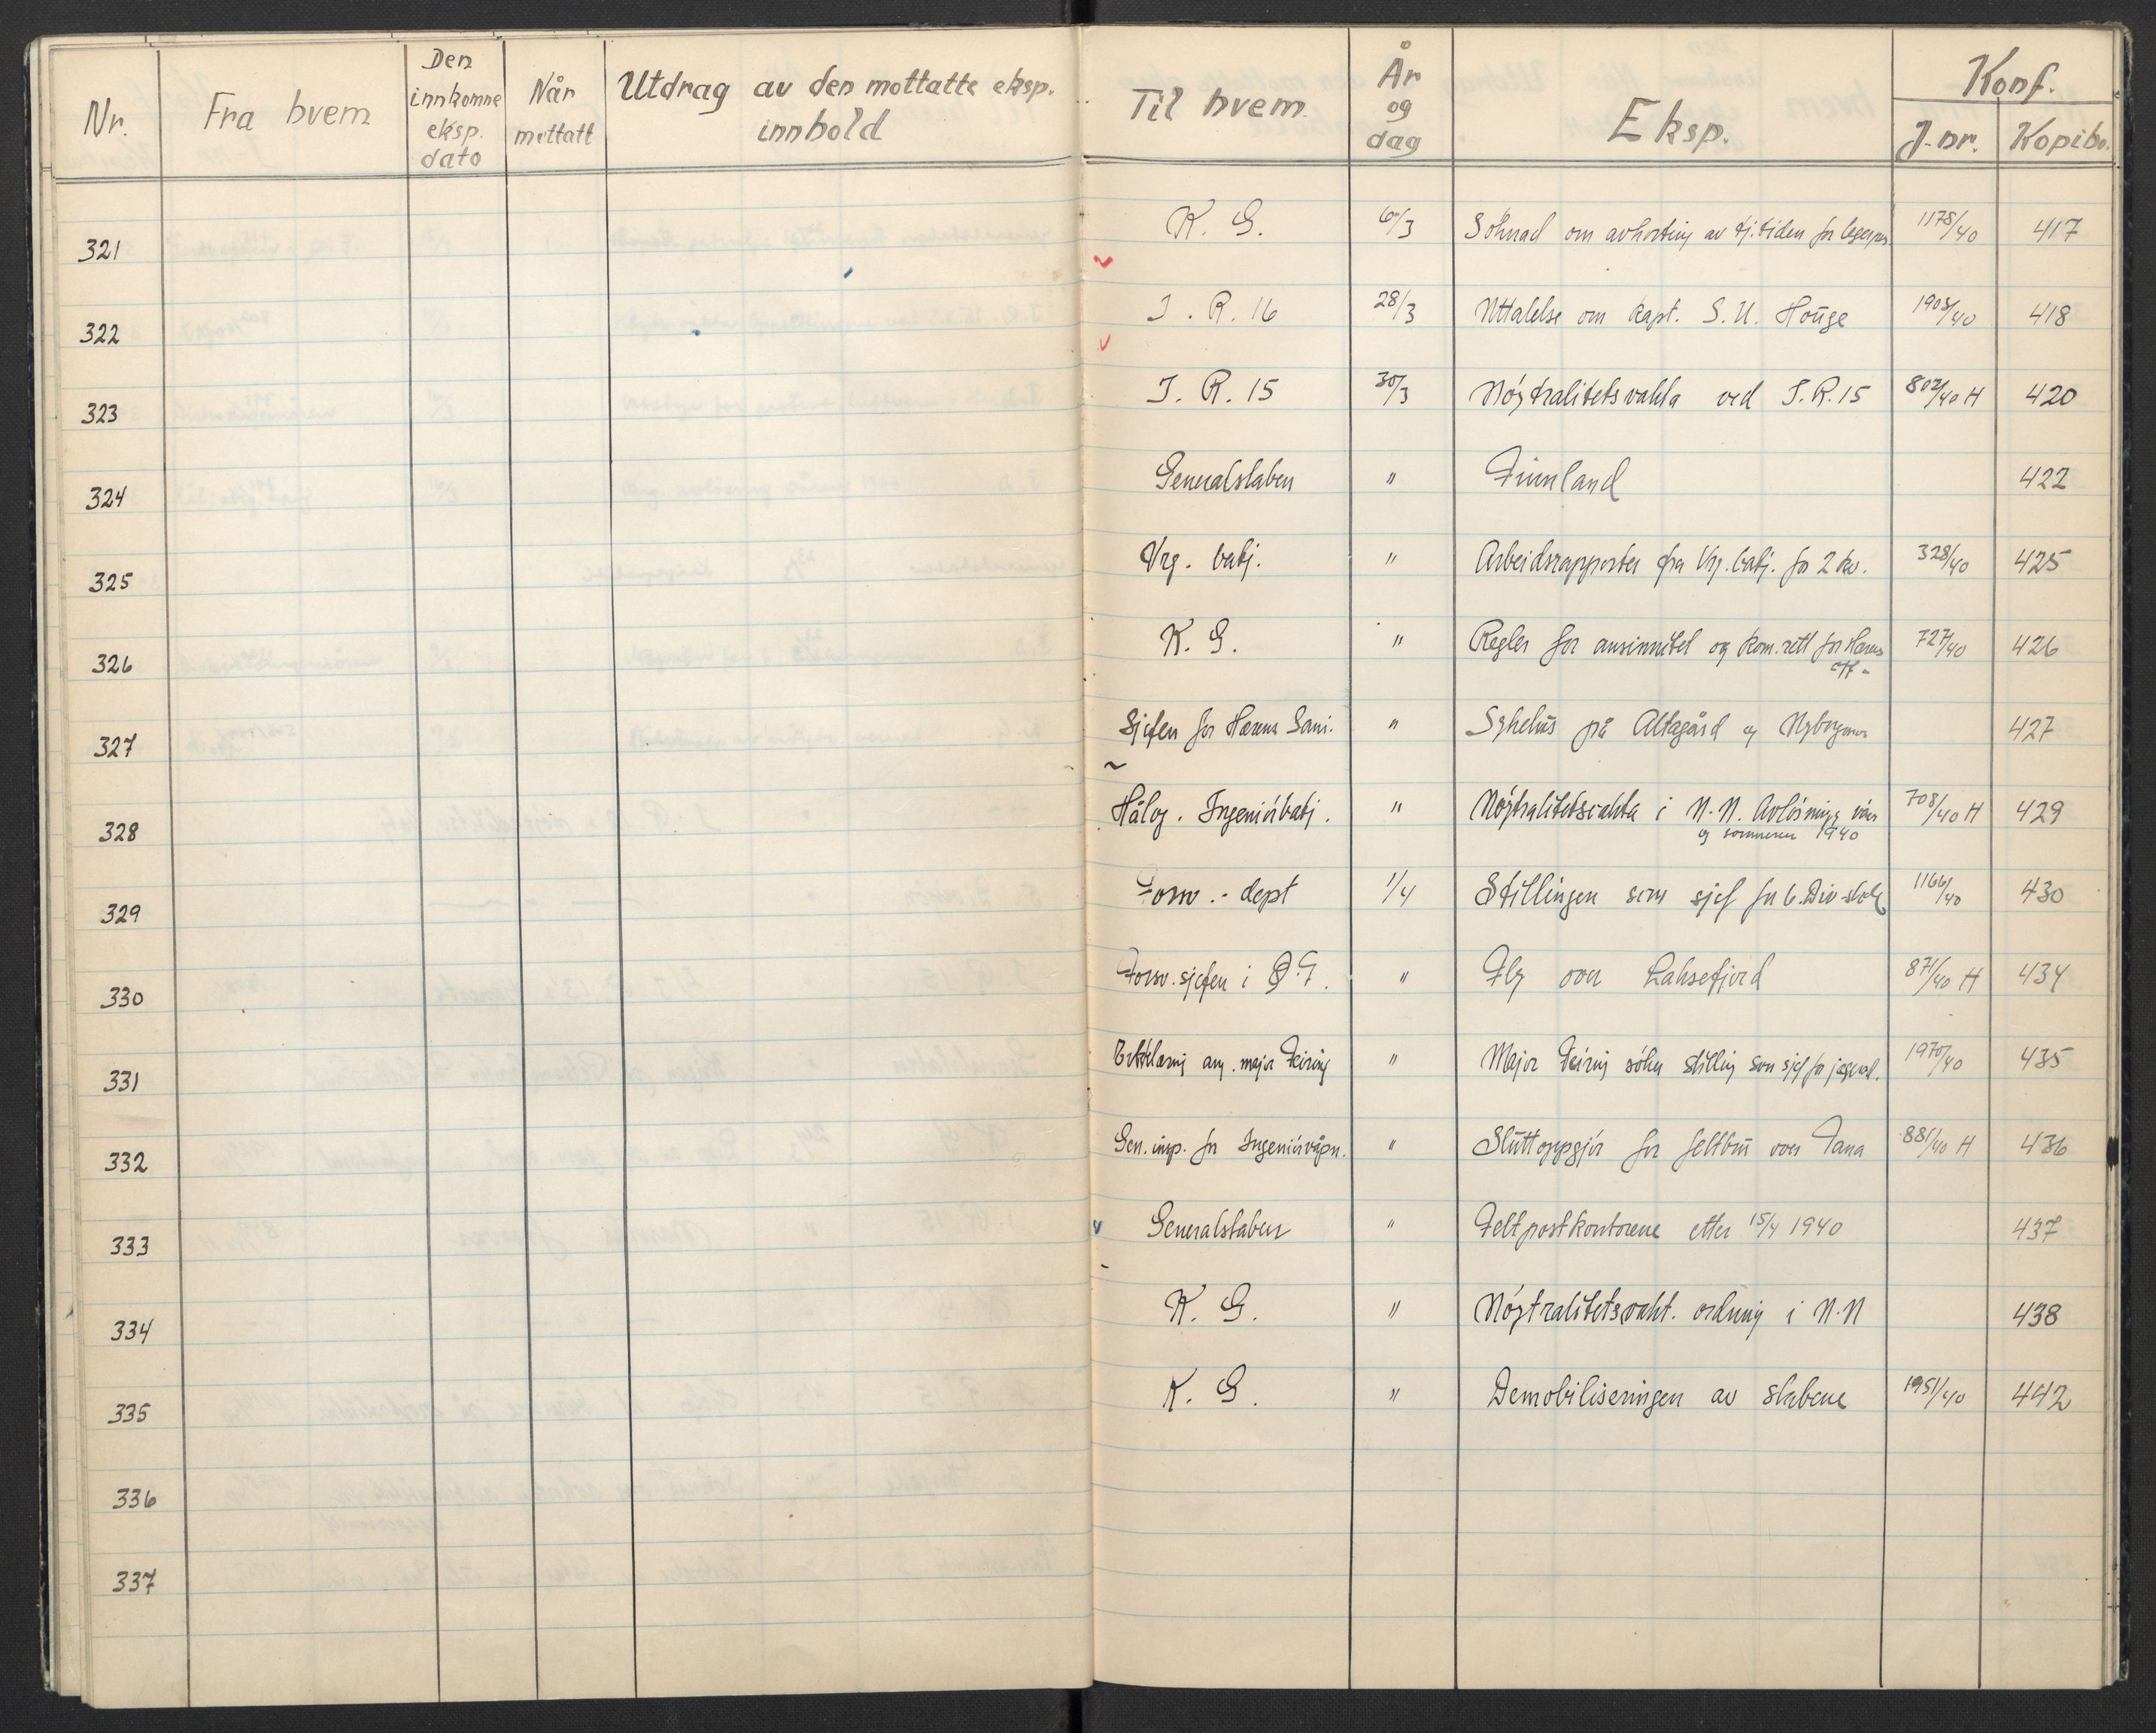 Nr. Fra hvem Den innkomne eksp. dato Når mottatt Utdrag av den mottatte eksp. innhold Til hvem År og dag Eksp. Konf. J-nr. Kopibo.
321 K. G. 6/3 Söknad om avkorting av tj.tiden for legepers. 1178/40 417
322 I. R. 16 28/3 Uttalelse om kapt. S. U. Houge 1903/40 418
323 I. R. 15 30/3 Nöytralitetsvakta ved I.R.15 802/40 H 420
324 Generalstaben " Finnland 422
325 Vrg. batj. " Arbeidsrapporter fra Vrg. batj. for 2 kv. 328/40 425
326 K. G. " Regler for ansinnitet og kom.rett for Hærens
off. 727/40 426
327 Sjefen for Hærens Sani. " Sykehus på Altagård og Nyborgmoen 427
328 Hålog. Ingeniörbatj. " Nöytralitetsvakta i N.N. Avlösning vår
og sommeren 1940 708/40 H 429
329 Forsv.-dept 1/4 Stillingen som sjef for 6. Div-stab 1166/40 430
330 Forsv.sjefen i Ö.F. " Fly over Laksefjord 871/40 H 434
331 Erklæring ang. major Feiring " Major Feiring söker stilling som sjef for 1970/40 435
332 Gen.insp. for Ingeniörvåpn. " Sluttoppgjör for feltbru over Tana 881/40 H 436
333 Generalstaben " Feltpostkontorene etter 15/4 1940 437
334 K. G. " Nöytralitetsvakt. ordning i N.N 438
335 K. G. " Demobiliseringen av stabene 1951/40 442
336
337